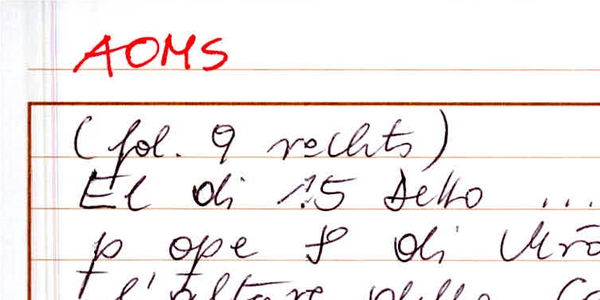 AOMS
(fol. 9 rechts)
El di 15 detto ...
p ope f di
l'altare della